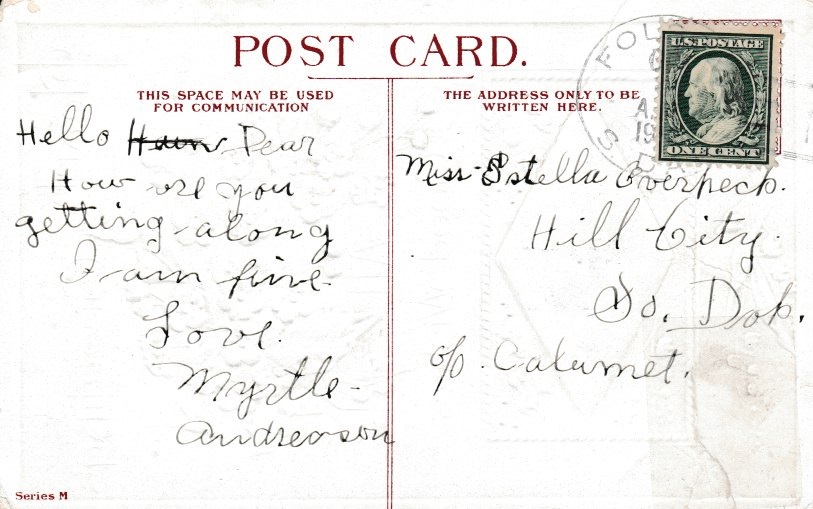 POST CARD.
THIS SPACE MAY BE USED
FOR COMMUNICATION
Hello Dear
How are you
getting along
I am fine.
Love.
Myrtle-
Andreason
Series M
THE ADDRESS ONLY TO BE
WRITTEN HERE.
U.S. POSTAGE
ONE CENT
FOL
S
19
Miss Estella Overpeck.
Hill City.
So. Dak.
c/o. Calumet.